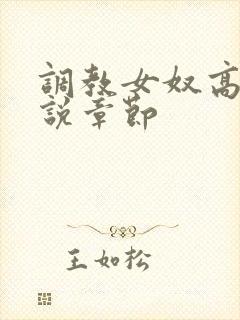 調教女奴高
說章節
王如松